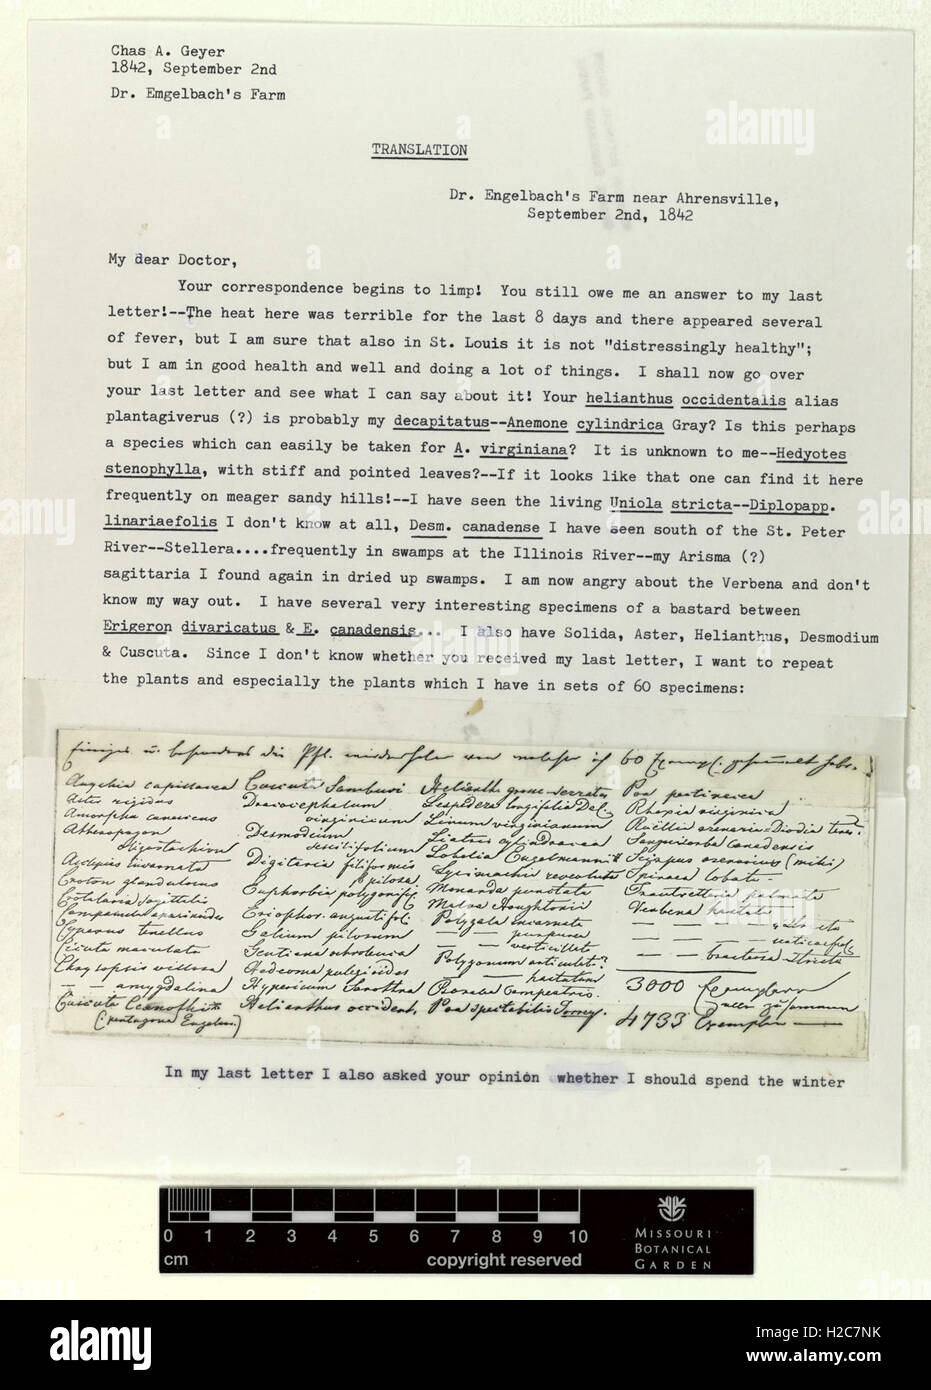 Chas A. Geyer
1842, September 2nd
Dr. Emgelbach's Farm
TRANSLATION
Dr. Engelbach's Farm near Ahrensville,
September 2nd, 1842
My dear Doctor,
Your correspondence begins to limp! You still owe me an answer to my last
letter!--The heat here was terrible for the last 8 days and there appeared several
of fever, but I am sure that also in St. Louis it is not "distressingly healthy";
but I am in good health and well and doing a lot of things. I shall now go over
your last letter and see what I can say about it! Your helianthus occidentalis alias
plantagiverus (?) is probably my decapitatus--Anemone cylindrica Gray? Is this perhaps
a species which can easily be taken for A. virginiana? It is unknown to me--Hedyotes
stenophylla, with stiff and pointed leaves?--If it looks like that one can find it here
frequently on meager sandy hills!--I have seen the living Uniola stricta--Diplopapp.
linariaefolis I don't know at all, Desm. canadense I have seen south of the St. Peter
River--Stellera....frequently in swamps at the Illinois River--my Arisma (?)
sagittaria I found again in dried up swamps. I am now angry about the Verbena and don't
know my way out. I have several very interesting specimens of a bastard between
Erigeron divaricatus & E. canadensis... I also have Solida, Aster, Helianthus, Desmodium
& Cuscuta. Since I don't know whether you received my last letter, I want to repeat
the plants and especially the plants which I have in sets of 60 specimens:
u. besonders die Pfl. wiederholen von welcher ich 60 Exempl. gesammelt habe.
Anychia capillacea Cuscuta Sambuci Helianth. grosse-serratus Poa pectinacea
Aster rigidus Dracocephalum Lespedeza longifolia DeC. Rhexia virginica
Amorpha canescens virginicum Linum virginianum Ruëllia arenaria - Diodia teres
Atheropogon Desmodium Liatris cylindracea Sanguisorba canadensis
oligostachium sessilifolium Lobelia Engelmannii Scirpus arenarius (mihi)
Asclepias incarnata Digitaria filiformis Lysimachia revoluta Spiraea lobata
Croton glandulosus pilosa Monarda punctata Trautvetteria palmata
Crotalaria sagittalis Euphorbia polygonif. Malva Houghtonii Verbena hastata
Campanula aparinoides Eriophor. angustifol. Polygala incarnata
Cyperus tenellus Galium pilosum — — purpurea
Cicuta maculata Gentiana ochroleuca — — verticillata — — bracteosa stricta
Chrysopsis villosa Hedeoma pulegioides Polygonum articulat.?
— — amygdalina Hypericum Sarothra — — hastatum 3000 Exemplare
Cuscuta Ceanothi Helianthus occident. Poa spectabilis Torrey. Alle zusammen
(pentagona Engelm.) 4733 Exemplar —
In my last letter I also asked your opinion whether I should spend the winter
0 1 2 3 4 5 6 7 8 9 10
cm
copyright reserved
MISSOURI
BOTANICAL
GARDEN
alamy
Image ID: H2C7NK
www.alamy.com